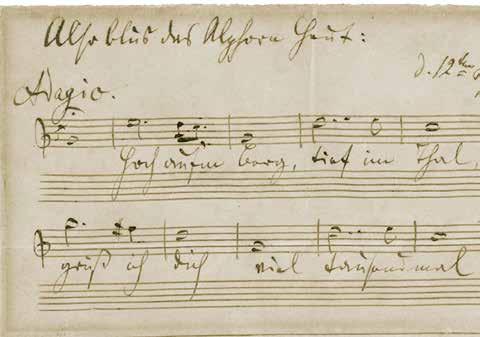 Also blus das Alphorn heut:
d. 12ten
Adagio.
Hoch auf'm Berg, tief im Thal,
grüß ich dich viel tausendmal